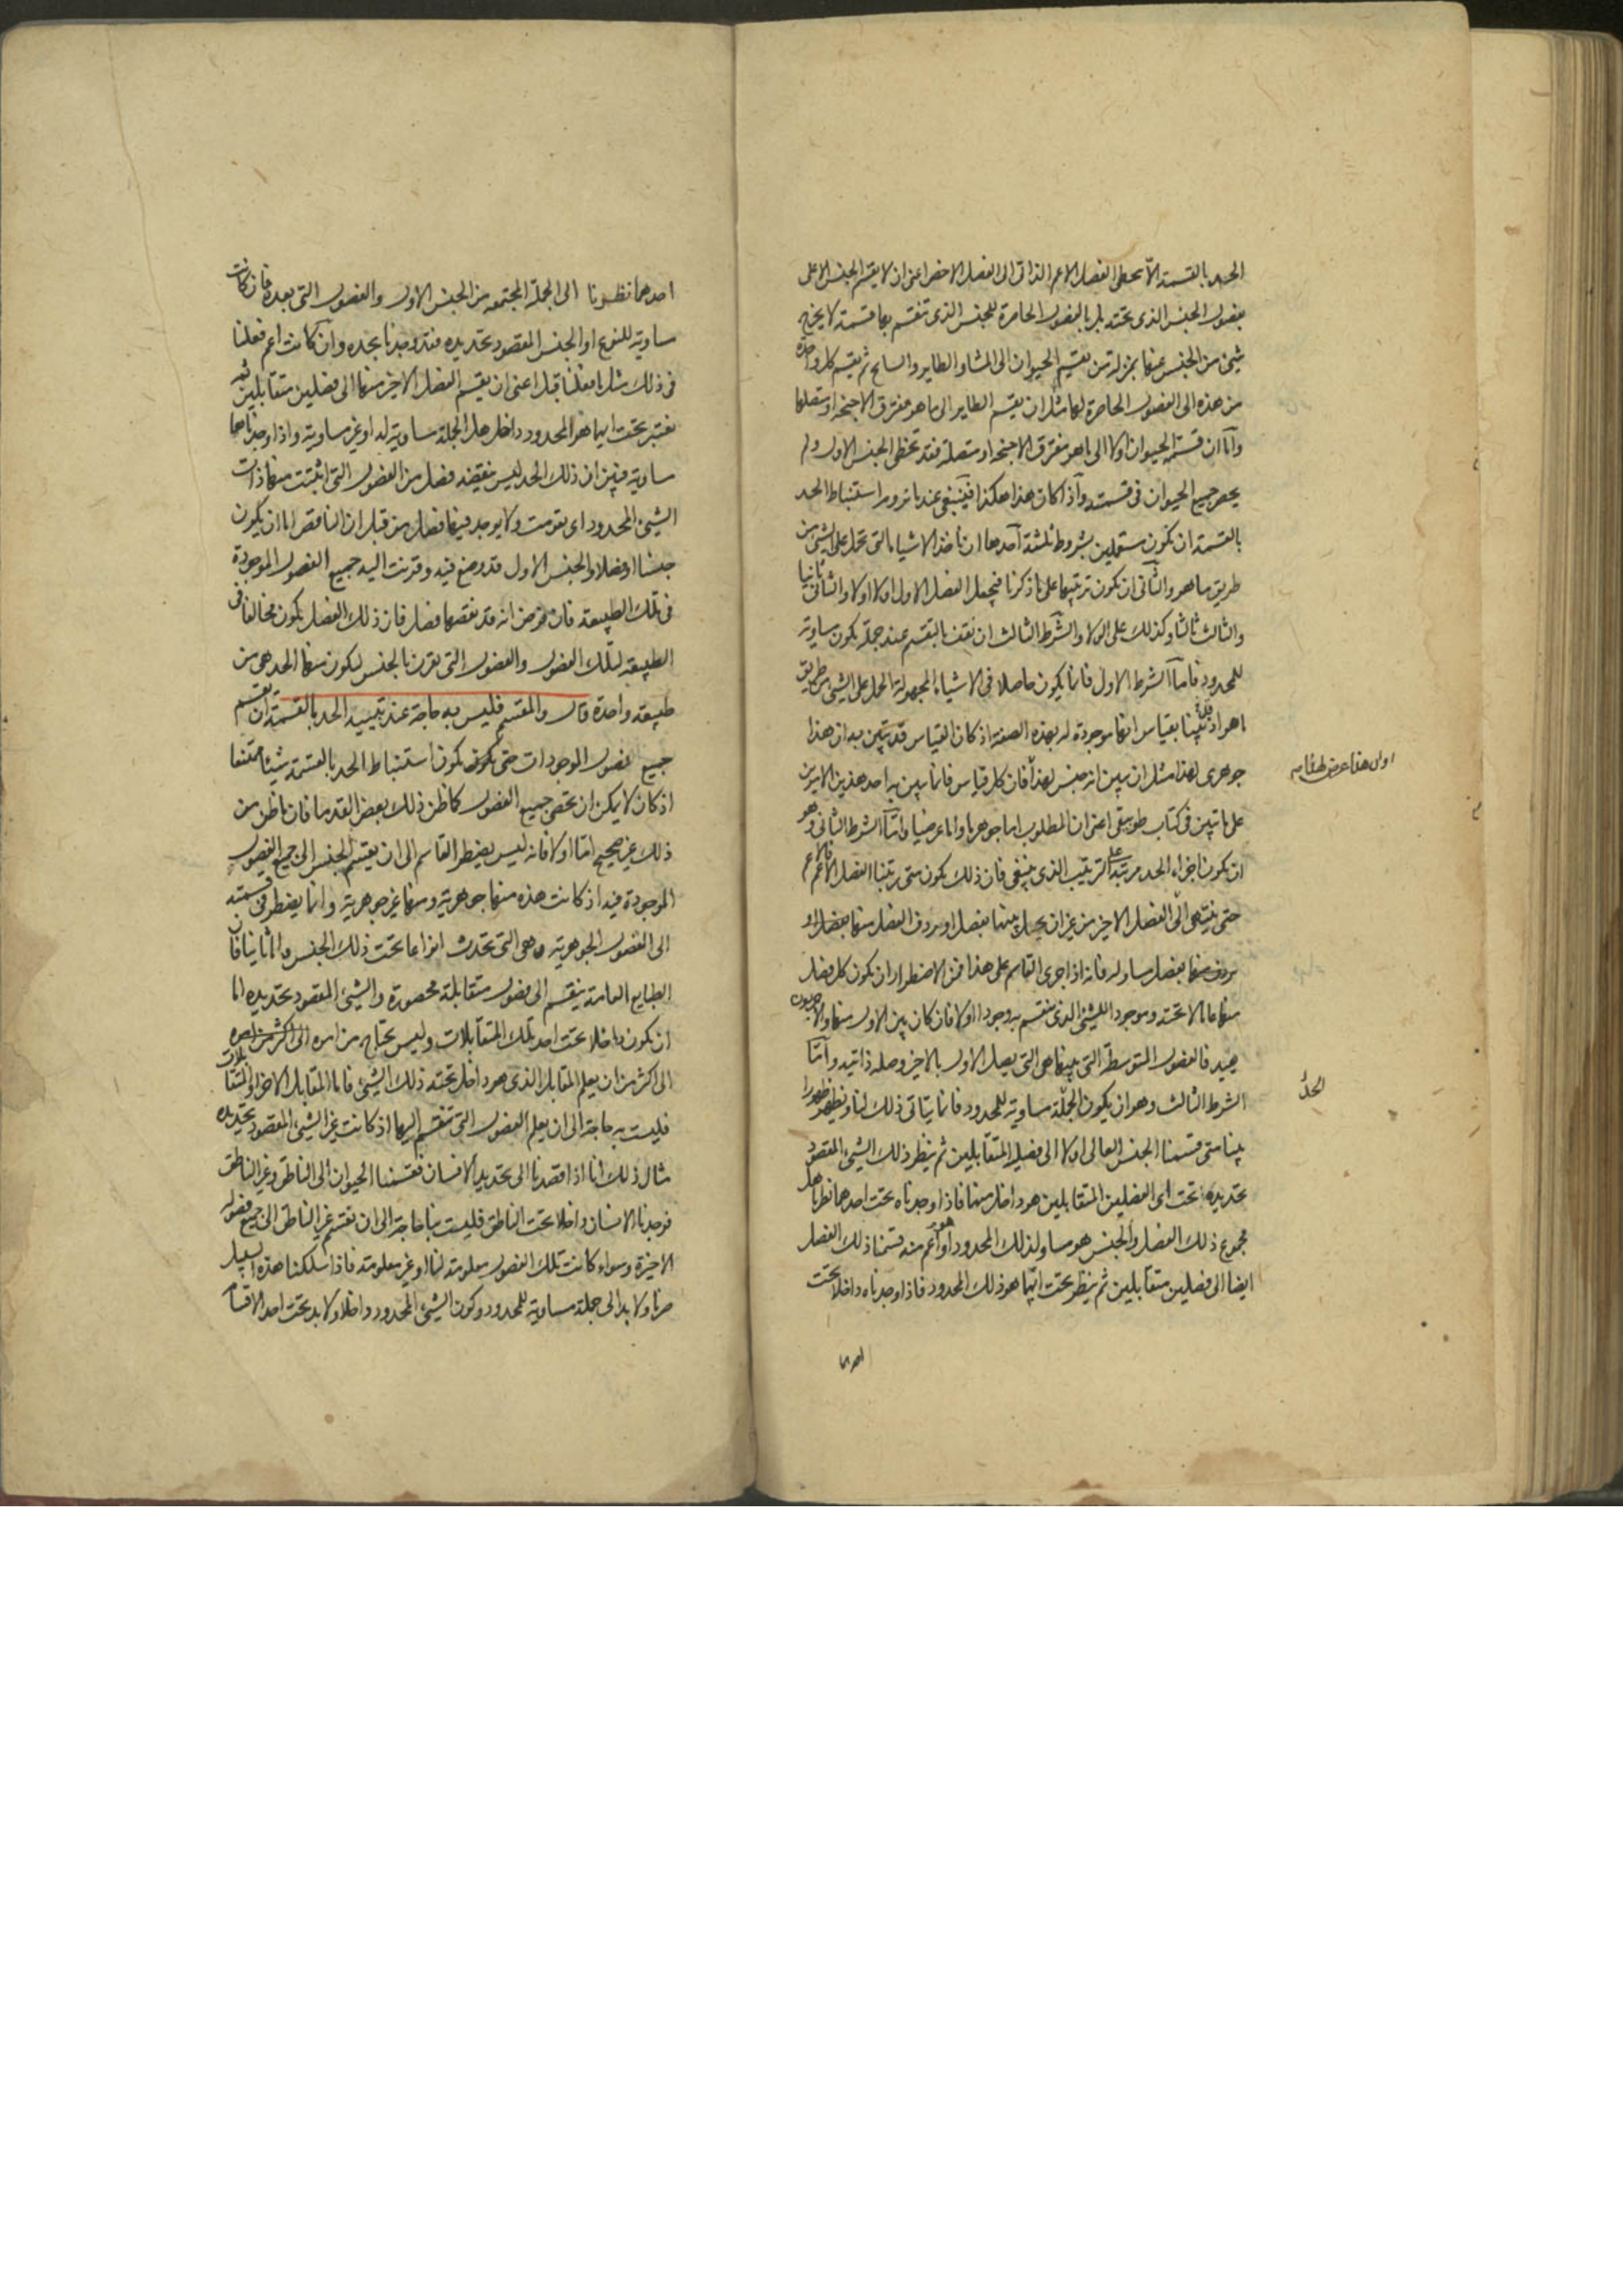 الحد بالقسمة الا يخطى الفصل الاعم الذاتى الى الفصل الاخص اعنى ان لا يقسم الجنس الاعلى
بفصول الجنس الذى تحته بل بالفصول الحاصرة للجنس الذى تنقسم بها قسمة لا يخرج
شىء من الجنس عنها بمنزلة من يقسم الحيوان الى المشاء والطاير والسابح ثم يقسم كل واحدة
من هذه الى الفصول الحاصرة لها مثل ان يقسم الطاير الى ما هو مفترق الاجنحة او متصلها
واما ان قسمة الحيوان اولا الى ما هو مفترق الاجنحة او متصلة فقد تخطى الجنس الاول ولم
يحصر جميع الحيوان فى قسمته واذا كان هذا هكذا فينبغى عند ما نروم استنباط الحد
بالقسمة ان نكون مستعملين بشروط ثلثة احدها ان ناخذ الاشياء التى تحمل على الشىء من
طريق ما هو والثانى ان نكون ترتيبها على ما ذكرنا فنجعل الفصل الاول اولا اولا والثانى ثانيا
والثالث ثالثا وكذلك على الولاء والشرط الثالث ان نقف بالتقسيم عند جملة يكون مساوية
للمحدود فاما الشرط الاول فانما يكون حاصلا فى الاشياء المجهولة الحمل على الشىء من طريق
ما هو اذ بينا بقياس انها موجودة له بهذه الصفة اذ كان القياس قد يتبين به ان هذا
جوهرى لهذا مثل ان يبين انه جنس لهذا فان كل قياس فانما يبين به احد هذين الامرين
على ما تبين فى كتاب طوبيقى اعنى ان المطلوب اما جوهريا واما عرضيا واما الشرط الثانى وهو
ان تكون اجزاء الحد مرتبة على الترتيب الذى ينبغى فان ذلك يكون متى رتبنا الفصل الاعم فالاعم
حتى ينتهى الى الفصل الاخير من غير ان يخل بينهما بفصل او يردف الفصل منها بفصل او
يردف منها بفصل مساو له فانه اذا جرى القاسم على هذا فمن الاضطرار ان يكون كل فصل
منها عاما لما تحته وموجودا للشىء الذى ينقسم به وجودا اولا فان كان بين الاول منها والاخير بون
بعيد فالفصول المتوسطة التى بينهما هى التى يصل الاول بالاخير وصلة ذاتية واما
الشرط الثالث وهو ان يكون الجملة مساوية للمحدود فانما يتاتى ذلك لنا ويظهر ظهورا
بينا متى قسمنا الجنس العالى اولا الى فصليه المتقابلين ثم ننظر ذلك الشىء المقصود
تحديده تحت اى الفصلين المتقابلين هو داخل منهما فاذا وجدناه تحت احدهما نظرنا هل
مجموع ذلك الفصل والجنس هو مساو لذلك المحدود او هو اعم منه قسمنا ذلك الفصل
ايضا الى فصلين متقابلين ثم ننظر تحت ايهما هو ذلك المحدود فاذا وجدناه داخلا تحت
احدهما
الحد
احدهما نظرنا الى الجملة المجتمعة من الجنس الاول والفصول التى بعده فان كانت
مساوية للنوع او الجنس المقصود تحديده فقد وجدنا حده وان كانت اعم فعلنا
فى ذلك مثل ما فعلنا قبل اعنى ان يقسم الفصل الاخير منها الى فصلين متقابلين ثم
نعتبر تحت ايهما هو المحدود داخل وهل الجملة مساوية له او غير مساوية واذا وجدناها
مساوية فبين ان ذلك الحد ليس ينقصه فصل من الفصول التى اثبتت منها ذات
الشىء المحدود اى تقومت ولا يوجد فيها فضل من قبل ان الناقص اما ان يكون
جنسا او فصلا والجنس الاول قد وضع فيه وقرنت اليه جميع الفصول الموجودة
فى تلك الطبيعة فان فرض انه قد نقصها فصل فان ذلك الفصل يكون مخالفا فى
الطبيعة لتلك الفصول والفصول التى تقرن بالجنس ليكون منها الحد هى من
طبيعة واحدة قال والمقسم فليس به حاجة عند تبيينه الحد بالقسمة ان يقسم
جميع فصول الموجودات حتى يكون استنباط الحد بالقسمة شيئا ممتنعا
اذ كان لا يمكن ان نحصى جميع الفصول كما ظن ذلك بعض القدما فان ما ظن من
ذلك غير صحيح اما اولا فانه ليس يضطر القاسم الى ان يقسم الجنس الى جميع الفصول
الموجودة فيه اذ كانت هذه منها جوهرية ومنها غير جوهرية وانما يضطر فى قسمته
الى الفصول الجوهرية وهى التى تحدث انواعا تحت ذلك الجنس واما ثانيا فان
الطبايع العامة ينقسم الى فصول متقابلة محصورة والشىء المقصود تحديده اما
ان يكون داخلا تحت احد تلك المتقابلات وليس يحتاج من امره الى اكثر من امره
الى اكثر من ان يعلم المقابل الذى هو داخل تحته ذلك الشىء فاما المقابل الاخر او المتقابلات
فليست به حاجة الى ان يعلم الفصول التى تنقسم اليها اذ كانت غير الشىء المقصود تحديده
مثال ذلك انا اذا قصدنا الى تحديد الانسان فقسمنا الحيوان الى الناطق وغير الناطق
فوجدنا الانسان داخلا تحت الناطق فليست بنا حاجة الى ان نقسم غير الناطق الى جميع فصوله
الاخيرة وسواء كانت تلك الفصول معلومة لنا او غير معلومة فاذا سلكنا هذه السبيل
صرنا ولا بد الى جملة مساوية للمحدود وكون الشىء المحدود داخلا ولا بد تحت احد الاقسام